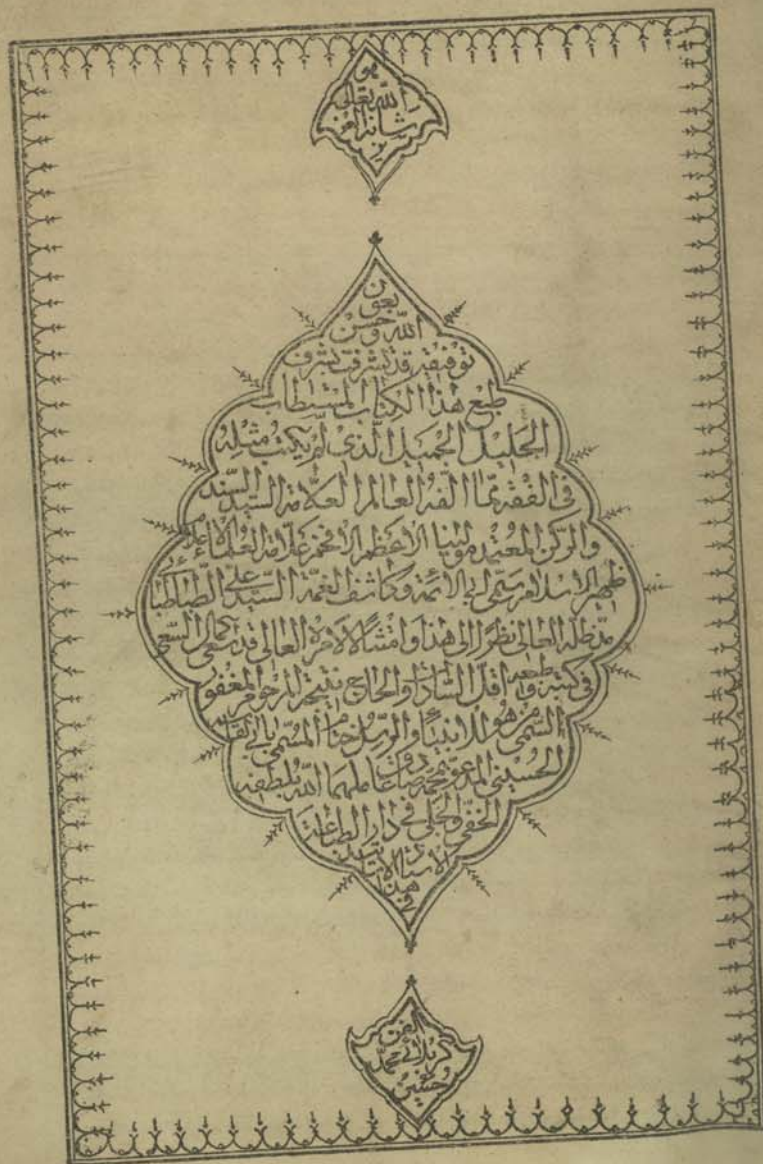 هو
الله تعالى
شانه العزيز
بعون
الله وحسن
توفيقه قد تشرفت بشرف
طبع هذا الكتاب المستطاب
الجليل الجميل الذي لم يكتب مثله
في الفقه مما الفه العالم العلامة السيد السند
والركن المعتمد مولينا الاعظم الافخم علامة العلماء الاعلام
ظهير الاسلام سمى ابي الائمة وكاشف الغمة السيد علي الطباطبائي
مد ظله العالى نظرا الى هذا وامتثالا لامره العالى قد سعى كمال السعى
فى كتبه وطبعه اقل السادات والحاج نتيجة المرحوم المغفور
السمى من هو للانبياء والرسل ختام المسمى بابي القاسم
الحسيني المدعو بمحمد صادق عاملهما الله بلطفه
الخفى والجلى فى دار الطباعة
الاستاد الاساتيد
فى هذا
الفن
كربلائى محمد
حسين